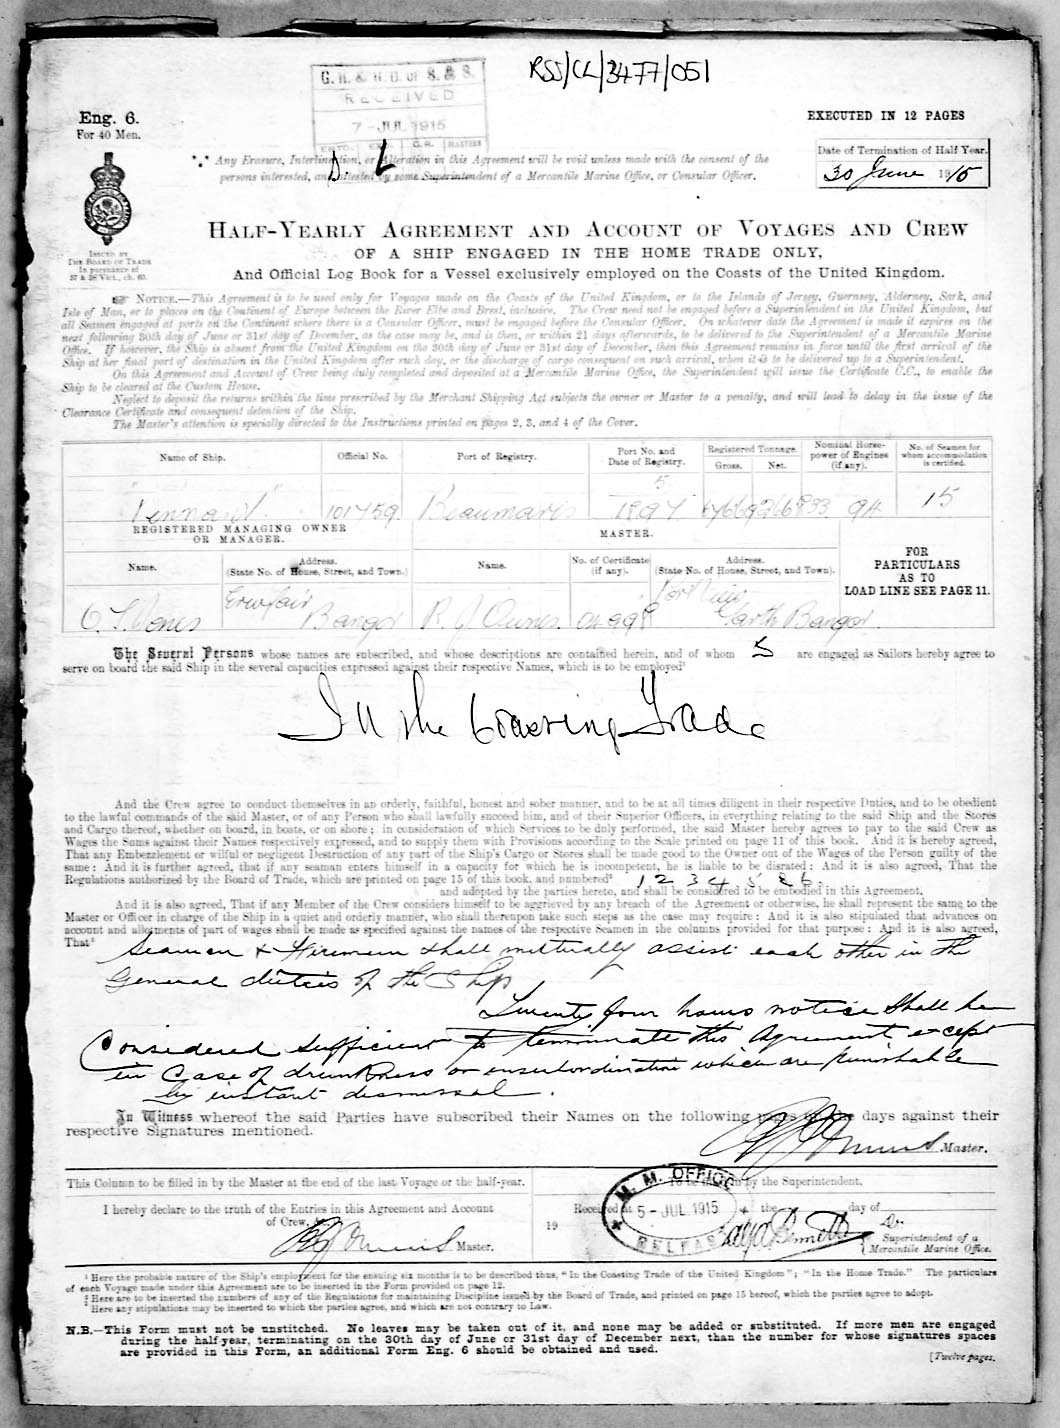 RSS/CL/3477/051
G. R. & R. O. of S. & S.
RECEIVED
7 - JUL 1915
Eng. 6.
For 40 Men.
EXECUTED IN 12 PAGES
Date of Termination of Half Year.
30 June 1915
Any Erasure, Interlineation, or Alteration in this Agreement will be void unless made with the consent of the
persons interested, and attested by some Superintendent of a Mercantile Marine Office, or Consular Officer.
D. L
HALF-YEARLY AGREEMENT AND ACCOUNT OF VOYAGES AND CREW
OF A SHIP ENGAGED IN THE HOME TRADE ONLY,
And Official Log Book for a Vessel exclusively employed on the Coasts of the United Kingdom.
ISSUED BY
THE BOARD OF TRADE
In pursuance of
57 & 58 VICT., ch. 60.
NOTICE.—This Agreement is to be used only for Voyages made on the Coasts of the United Kingdom, or to the Islands of Jersey, Guernsey, Alderney, Sark, and
Isle of Man, or to places on the Continent of Europe between the River Elbe and Brest, inclusive. The Crew need not be engaged before a Superintendent in the United Kingdom, but
all Seamen engaged at ports on the Continent where there is a Consular Officer, must be engaged before the Consular Officer. On whatever date the Agreement is made it expires on the
next following 30th day of June or 31st day of December, as the case may be, and is then, or within 21 days afterwards, to be delivered to the Superintendent of a Mercantile Marine
Office. If however, the Ship is absent from the United Kingdom on the 30th day of June or 31st day of December, then this Agreement remains in force until the first arrival of the
Ship at her final port of destination in the United Kingdom after such day, or the discharge of cargo consequent on such arrival, when it is to be delivered up to a Superintendent.
On this Agreement and Account of Crew being duly completed and deposited at a Mercantile Marine Office, the Superintendent will issue the Certificate C.C., to enable the
Ship to be cleared at the Custom House.
Neglect to deposit the returns within the time prescribed by the Merchant Shipping Act subjects the owner or Master to a penalty, and will lead to delay in the issue of the
Clearance Certificate and consequent detention of the Ship.
The Master's attention is specially directed to the Instructions printed on pages 2, 3, and 4 of the Cover.
Name of Ship. Official No. Port of Registry. Port No. and Date of Registry. Registered Tonnage. Gross. Net. Nominal Horse-power of Engines (if any). No. of Seamen for whom accommodation is certified.
101759 Beaumaris 5 1897 94 15
REGISTERED MANAGING OWNER
OR MANAGER.
MASTER.
Name. Address. (State No. of House, Street, and Town.) Name. No. of Certificate (if any). Address. (State No. of House, Street, and Town).
FOR
PARTICULARS
AS TO
LOAD LINE SEE PAGE 11.
Bangor Garth Bangor
The Several Persons whose names are subscribed, and whose descriptions are contained herein, and of whom 5 are engaged as Sailors hereby agree to
serve on board the said Ship in the several capacities expressed against their respective Names, which is to be employed¹
In the Coasting Trade
And the Crew agree to conduct themselves in an orderly, faithful, honest and sober manner, and to be at all times diligent in their respective Duties, and to be obedient
to the lawful commands of the said Master, or of any Person who shall lawfully succeed him, and of their Superior Officers, in everything relating to the said Ship and the Stores
and Cargo thereof, whether on board, in boats, or on shore; in consideration of which Services to be duly performed, the said Master hereby agrees to pay to the said Crew as
Wages the Sums against their Names respectively expressed, and to supply them with Provisions according to the Scale printed on page 11 of this book. And it is hereby agreed,
That any Embezzlement or wilful or negligent Destruction of any part of the Ship's Cargo or Stores shall be made good to the Owner out of the Wages of the Person guilty of the
same: And it is further agreed, that if any seaman enters himself in a capacity for which he is incompetent, he is liable to be disrated: And it is also agreed, That the
Regulations authorized by the Board of Trade, which are printed on page 15 of this book, and numbered² 1 2 3 4 5 & 6
and adopted by the parties hereto, and shall be considered to be embodied in this Agreement.
And it is also agreed, That if any Member of the Crew considers himself to be aggrieved by any breach of the Agreement or otherwise, he shall represent the same to the
Master or Officer in charge of the Ship in a quiet and orderly manner, who shall thereupon take such steps as the case may require: And it is also stipulated that advances on
account and allotments of part of wages shall be made as specified against the names of the respective Seamen in the columns provided for that purpose: And it is also agreed,
That³ Seamen & Firemen shall mutually assist each other in the
General duties of the Ship
Twenty four hours notice shall be
Considered sufficient to terminate this Agreement, except
in Case of drunkness or insubordination which are punishable
by instant dismissal.
In Witness whereof the said Parties have subscribed their Names on the following pages on the days against their
respective Signatures mentioned.
Master.
This Column to be filled in by the Master at the end of the last Voyage or the half-year.
I hereby declare to the truth of the Entries in this Agreement and Account
of Crew, &c.
Master.
To be filled in by the Superintendent.
19 Received at the day of
M. M. OFFICE
5 - JUL 1915
BELFAST
Superintendent of a
Mercantile Marine Office.
¹ Here the probable nature of the Ship's employment for the ensuing six months is to be described thus, "In the Coasting Trade of the United Kingdom"; "In the Home Trade." The particulars
of each Voyage made under this Agreement are to be inserted in the Form provided on page 12.
² Here are to be inserted the numbers of any of the Regulations for maintaining Discipline issued by the Board of Trade, and printed on page 15 hereof, which the parties agree to adopt.
³ Here any stipulations may be inserted to which the parties agree, and which are not contrary to Law.
N.B.—This Form must not be unstitched. No leaves may be taken out of it, and none may be added or substituted. If more men are engaged
during the half-year, terminating on the 30th day of June or 31st day of December next, than the number for whose signatures spaces
are provided in this Form, an additional Form Eng. 6 should be obtained and used.
[Twelve pages.